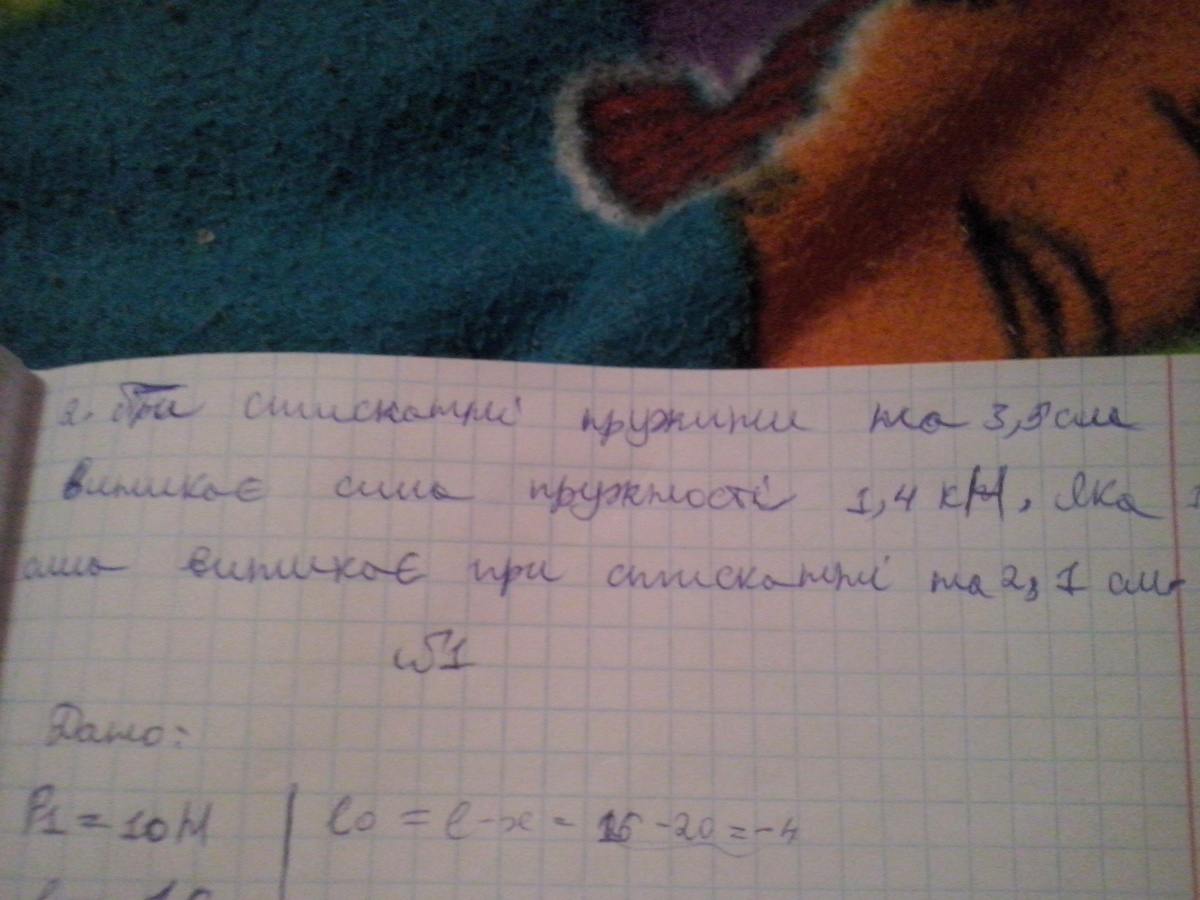 2. При стисканні пружини на 3,5 см
виникає сила пружності 1,4 кН, Яка
сила виникає при стисканні на 2,1 см
№1
Дано:
F1 = 10 Н
l0 = l - x = 16 - 20 = -4